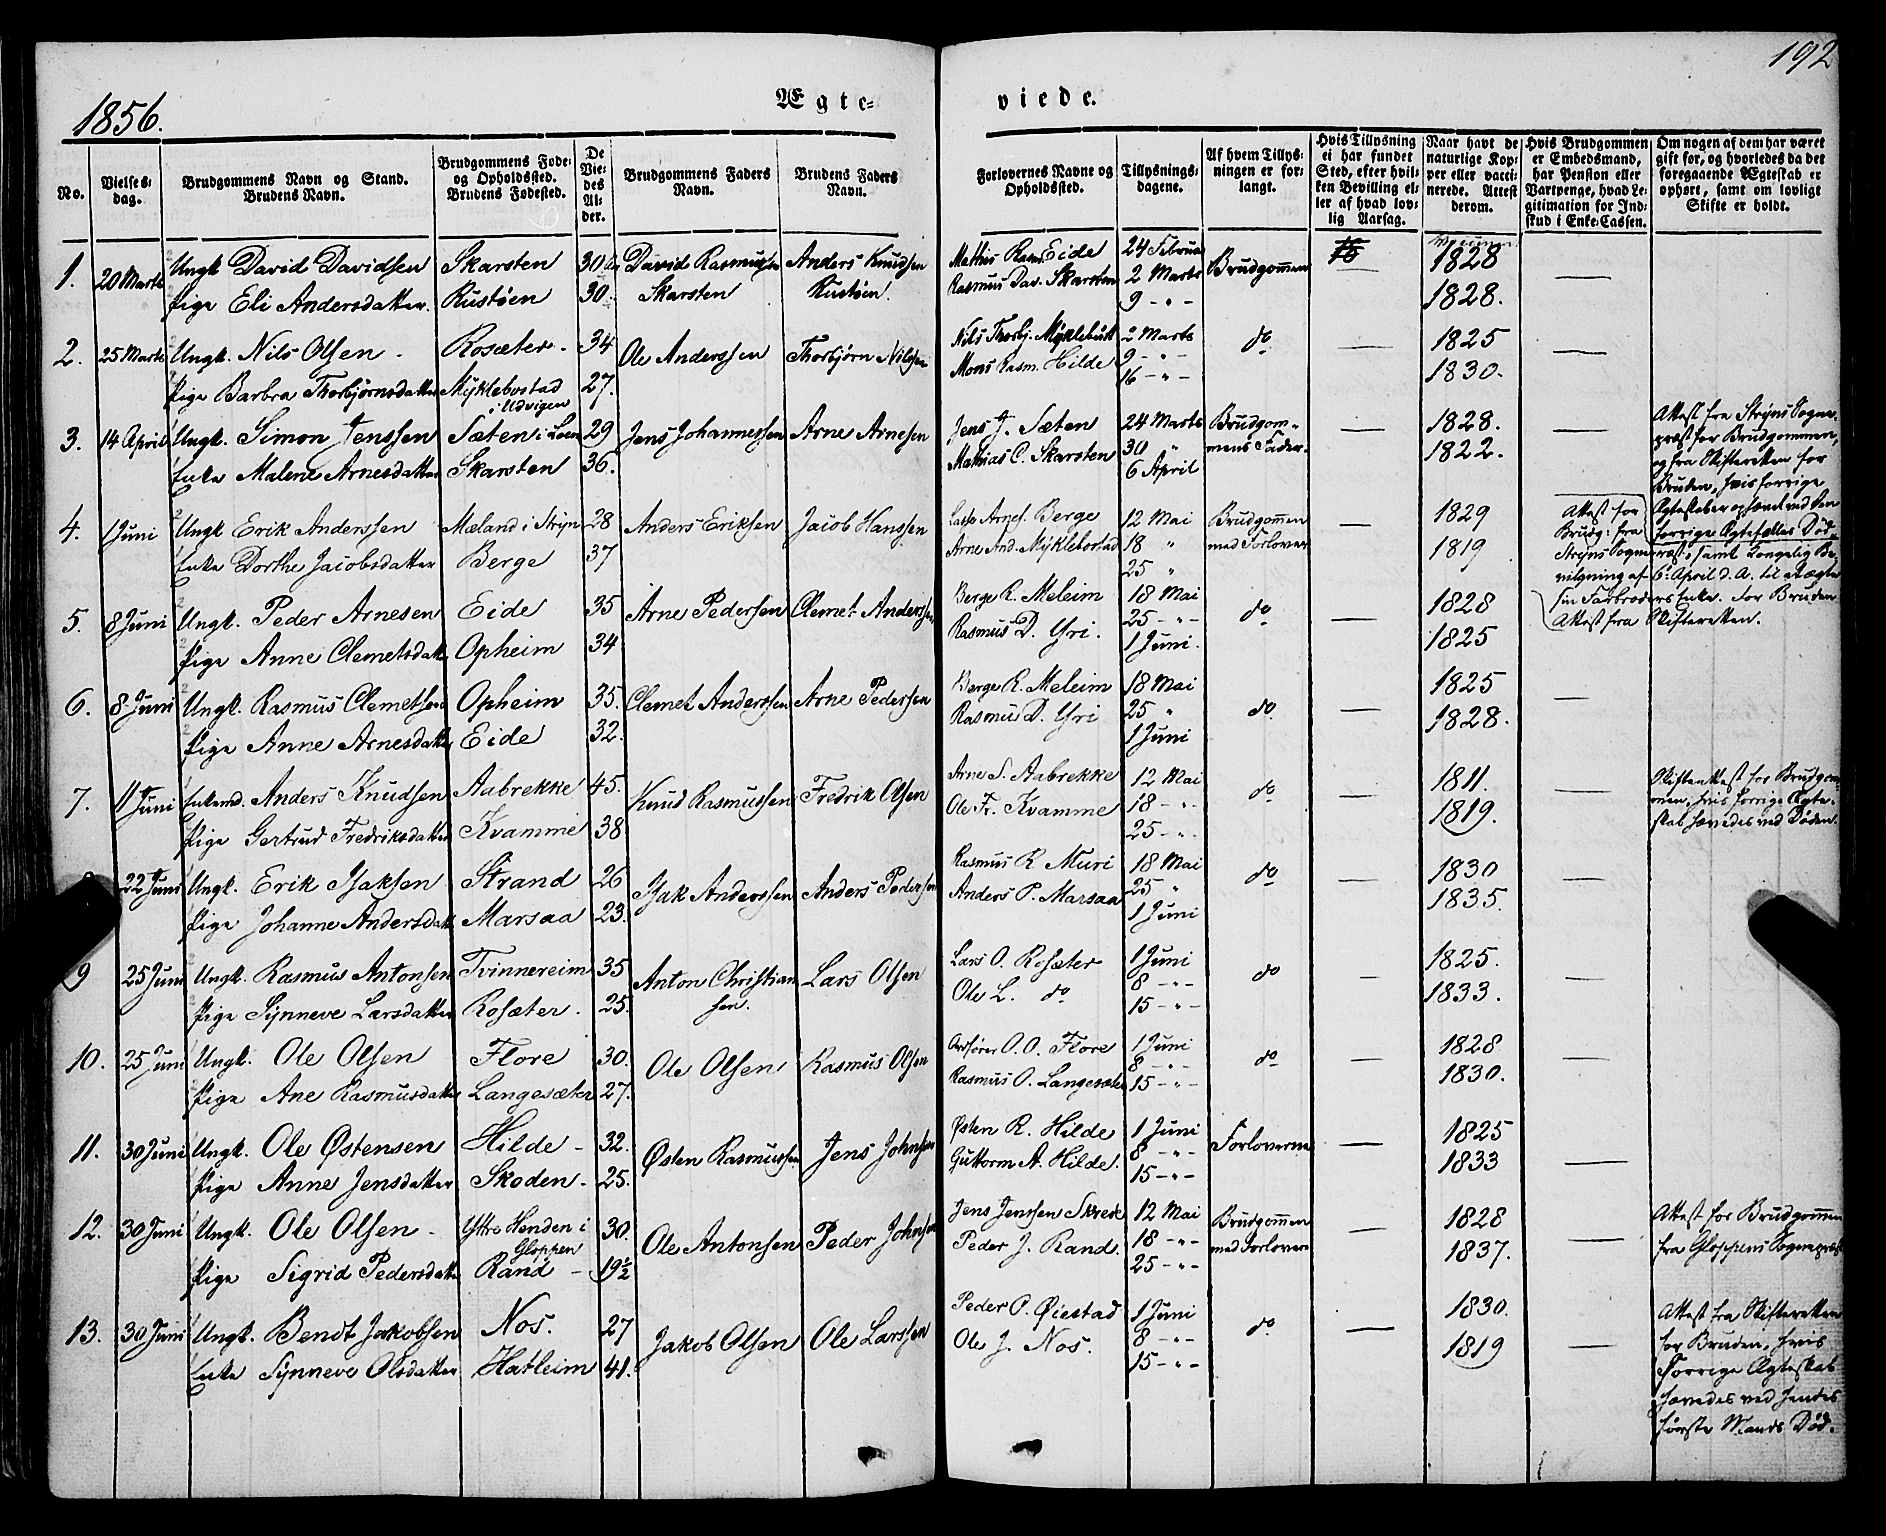 192
1856.
Ægte=
viede.
No.
Vielses-dag.
Brudgommens Navn og Stand. Brudens Navn.
Brudgommens Føde- og Opholdssted. Brudens Fødested.
De Vie-des Al-der.
Brudgommens Faders Navn.
Brudens Faders Navn.
Forlovernes Navne og Opholdssted.
Tillysnings-dagene.
Af hvem Tillys-ningen er for-langt.
Hvis Tillysning ei har fundet Sted, efter hvil-ken Bevilling el-ler af hvad lov-lig Aarsag.
Naar havt de naturlige Kop-per eller vacci-nerede. Attest derom.
Hvis Brudgommen er Embedsmand, har Pension eller Vartpenge, hvad Le-gitimation for Ind-skud i Enke-Cassen.
Om nogen af dem har været gift før, og hvorledes da det foregaaende Ægteskab er ophørt, samt om lovligt Skifte er holdt.
1. 20 Marts Ungk David Davidsen Skarsten 30 David Rasmussen Anders Knudsen Mathis Rasm. Eide 24 Februar Brudgommen — 1828 —
Pige Eli Andersdatter. Rustøen 30. Skarsten Rustøen. Rasmus Dav. Skarsten 2 Marts 1828.
9 - " -
2. 25 Marts Ungk. Nils Olsen - Rosæter - 34 Ole Anderssen Thorbjørn Nilssen Nils Thorbj. Myklebust 2 Marts do — 1825 —
Pige Barbra Thorbjørnsdatter Myklebostad i Udvigen 27. Mons Rasm. Hilde 9 - " - 1830.
16 - " -
3. 14 April Ungk. Simon Jenssen Sæten i Loen 29 Jens Johannessen Arne Arnesen Jens J. Sæten 24 Marts Brudgom- — 1828. — Attest fra Stryns Sogne-
Enke Malene Arnesdatter Skarsten 36. Mathias C. Skarsten 30 " mens Fader. 1822. præst for Brudgommen,
6 April og fra Skifteretten for
Bruden, hvis forrige
Ægteskab er ophævet ved den
forrige Ægtefælles Død
4. 1 Juni Ungk Erik Anderssen Mæland i Stryn 28 Anders Eriksen Jacob Hanssen Lasse Arnes. Berge 12 Mai Brudgommen — 1829 Attest for
Enke Dorthe Jacobsdatter Berge 37 Arne And. Myklebostad 18 " med Forlover 1819 Brudg: fra
25 " Stryns Sognepræst, samt Kongelig Be-
vilgning af 6 April d. A. til at ægte
sin Farbroders Enke. For Bruden
Attest fra Skifteretten.
5. 8 Juni Ungk. Peder Arnesen Eide 35 Arne Pedersen Clemet Anderssen Berge R. Meleim 18 Mai do — 1828
Pige Anne Clemetsdatter Opheim 34 Rasmus D. Yri. 25 - " - 1825
1 Juni.
6. 8 Juni Ungk. Rasmus Clemetsen Opheim 35. Clemet Anderssen Arne Pedersen Berge R. Meleim 18 Mai do — 1825 —
Pige Anne Arnesdatter Eide 32. Rasmus D. Yri 25 " 1828.
1 Juni
7. 11 Juni Enkemd. Anders Knudsen Aabrekke 45. Knud Rasmussen Fredrik Olsen Arne S. Aabrekke 12 Mai do — 1811. — Skifteattest for Brudgom-
Pige Gertrud Fredriksdatter Kvamme 38 Ole Fr. Kvamme 18 - " - 1819. men, hvis forrige Ægte-
25 - " - skab hævedes ved Døden.
22 Juni Ungk. Erik Isaksen Strand 26 Isak Anderssen Anders Pedersen Rasmus R Muri 18 Mai do — 1830 —
Pige Johanne Andersdatt Marsaa 23. Anders P. Marsaa 25 " 1835.
1 Juni
9 25 Juni Ungk. Rasmus Antonsen Tvinnereim 35 Anton Christian- Lars Olsen Lars O. Rosæter 1 Juni do — 1825. —
Pige Synneve Larsdatter Rosæter. 25. sen. Ole L. do 8 - " - 1833.
15 - " -
10. 25 Juni Ungk. Ole Olsen Flore 30. Ole Olsen Rasmus Olsen O. O. Flore 1 Juni do — 1828 —
Pige Ane Rasmusdatter Langesæter 27. Rasmus O. Langesæter 8 - " - 1830.
15 - " -
11. 30 Juni Ungk. Ole Østensen Hilde - 32. Østen Rasmussen Jens Johnsen Østen R. Hilde 1 Juni Forloverne — 1825 —
Pige Anne Jensdatter Skoden - 25. Guttorm A. Hilde. 8 - " - 1833
15 - " -
12. 30 Juni Ungk. Ole Olsen - Yttre Henden i Gloppen 30. Ole Antonsen Peder Johnsen Jens Jenssen Skrede 12 Mai Brudgommen — 1828 — Attest for Brudgommen
Pige Sigrid Pedersdatter Rand - 19½ Peder J. Rand. 18 - " - med Forlovere 1837. fra Gloppens Sognepræst
25 - " -
13. 30 Juni Ungk. Bendt Jakobsen Nos. 27 Jakob Olsen Ole Larssen Peder P. Øiestad 1 Juni do — 1830. — Attest fra Skifteretten
Enke Synneve Olsdatter Hatleim 41. Ole J. Nos. 8 - " - 1819 for Bruden, hvis
15 - " - forrige Ægteskab
hævedes ved hendes
første Mands Død.